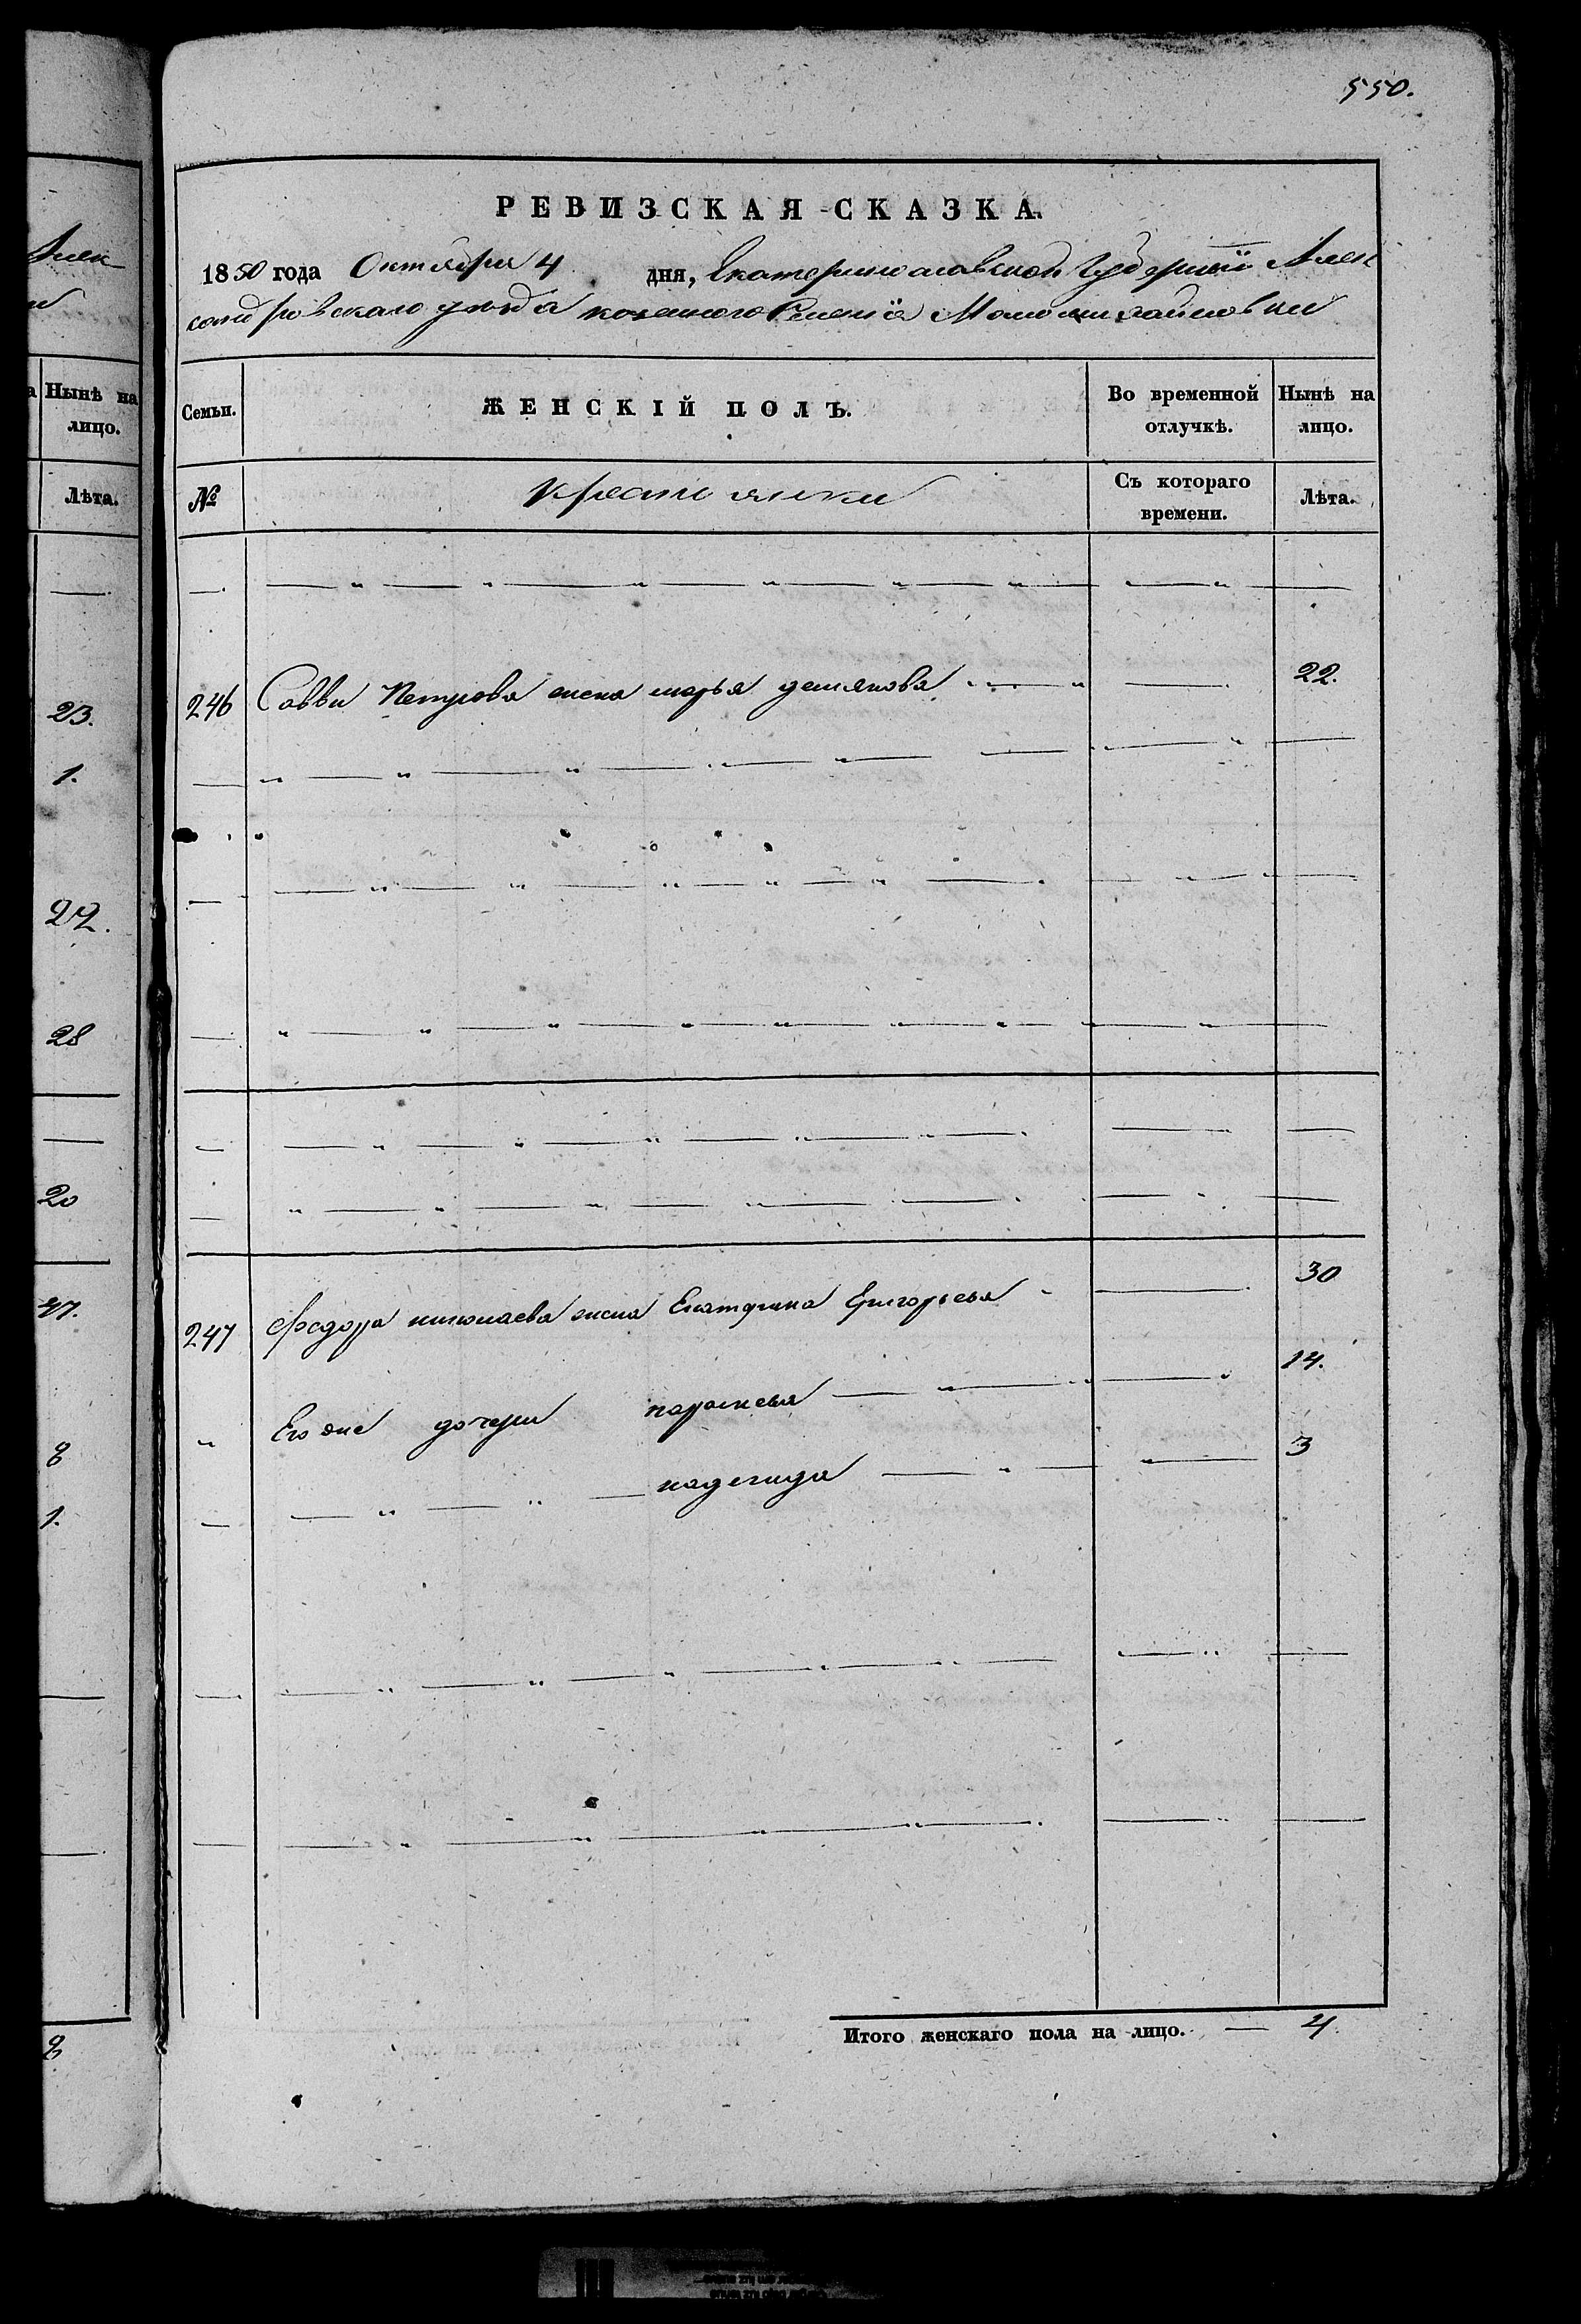 550.
РЕВИЗСКАЯ СКАЗКА.
1850 года Октября 4 дня, Екатеринославской Губерніи Алек
сандровскаго уѣзда казеннаго Селенія Маломихайловки
Алек
а Нынѣ на
лицо.
Лѣта.
23.
1.
22.
28
20
47.
8
1.
8
Семьи.
ЖЕНСКІЙ ПОЛЪ.
Во временной
отлучкѣ.
Нынѣ на
лицо.
№
Крестьянки
Съ котораго
времени.
Лѣта.
246 Саввы Петрова жена марья демянова 22.
247 Федора николаева жена Екатерина Григорьева 30
" Его же дочери парасковья 14.
надежда 3
Итого женскаго пола на лицо. — 4.